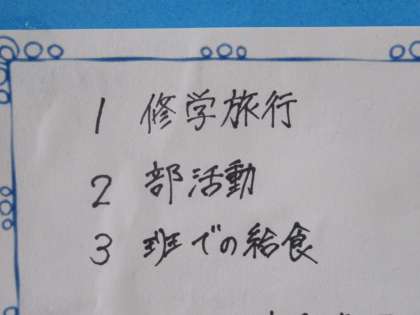 1 修学旅行
2 部活動
3 班での給食